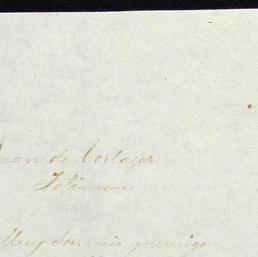 Juan de Cortazar
Muy Sor mio y amigo